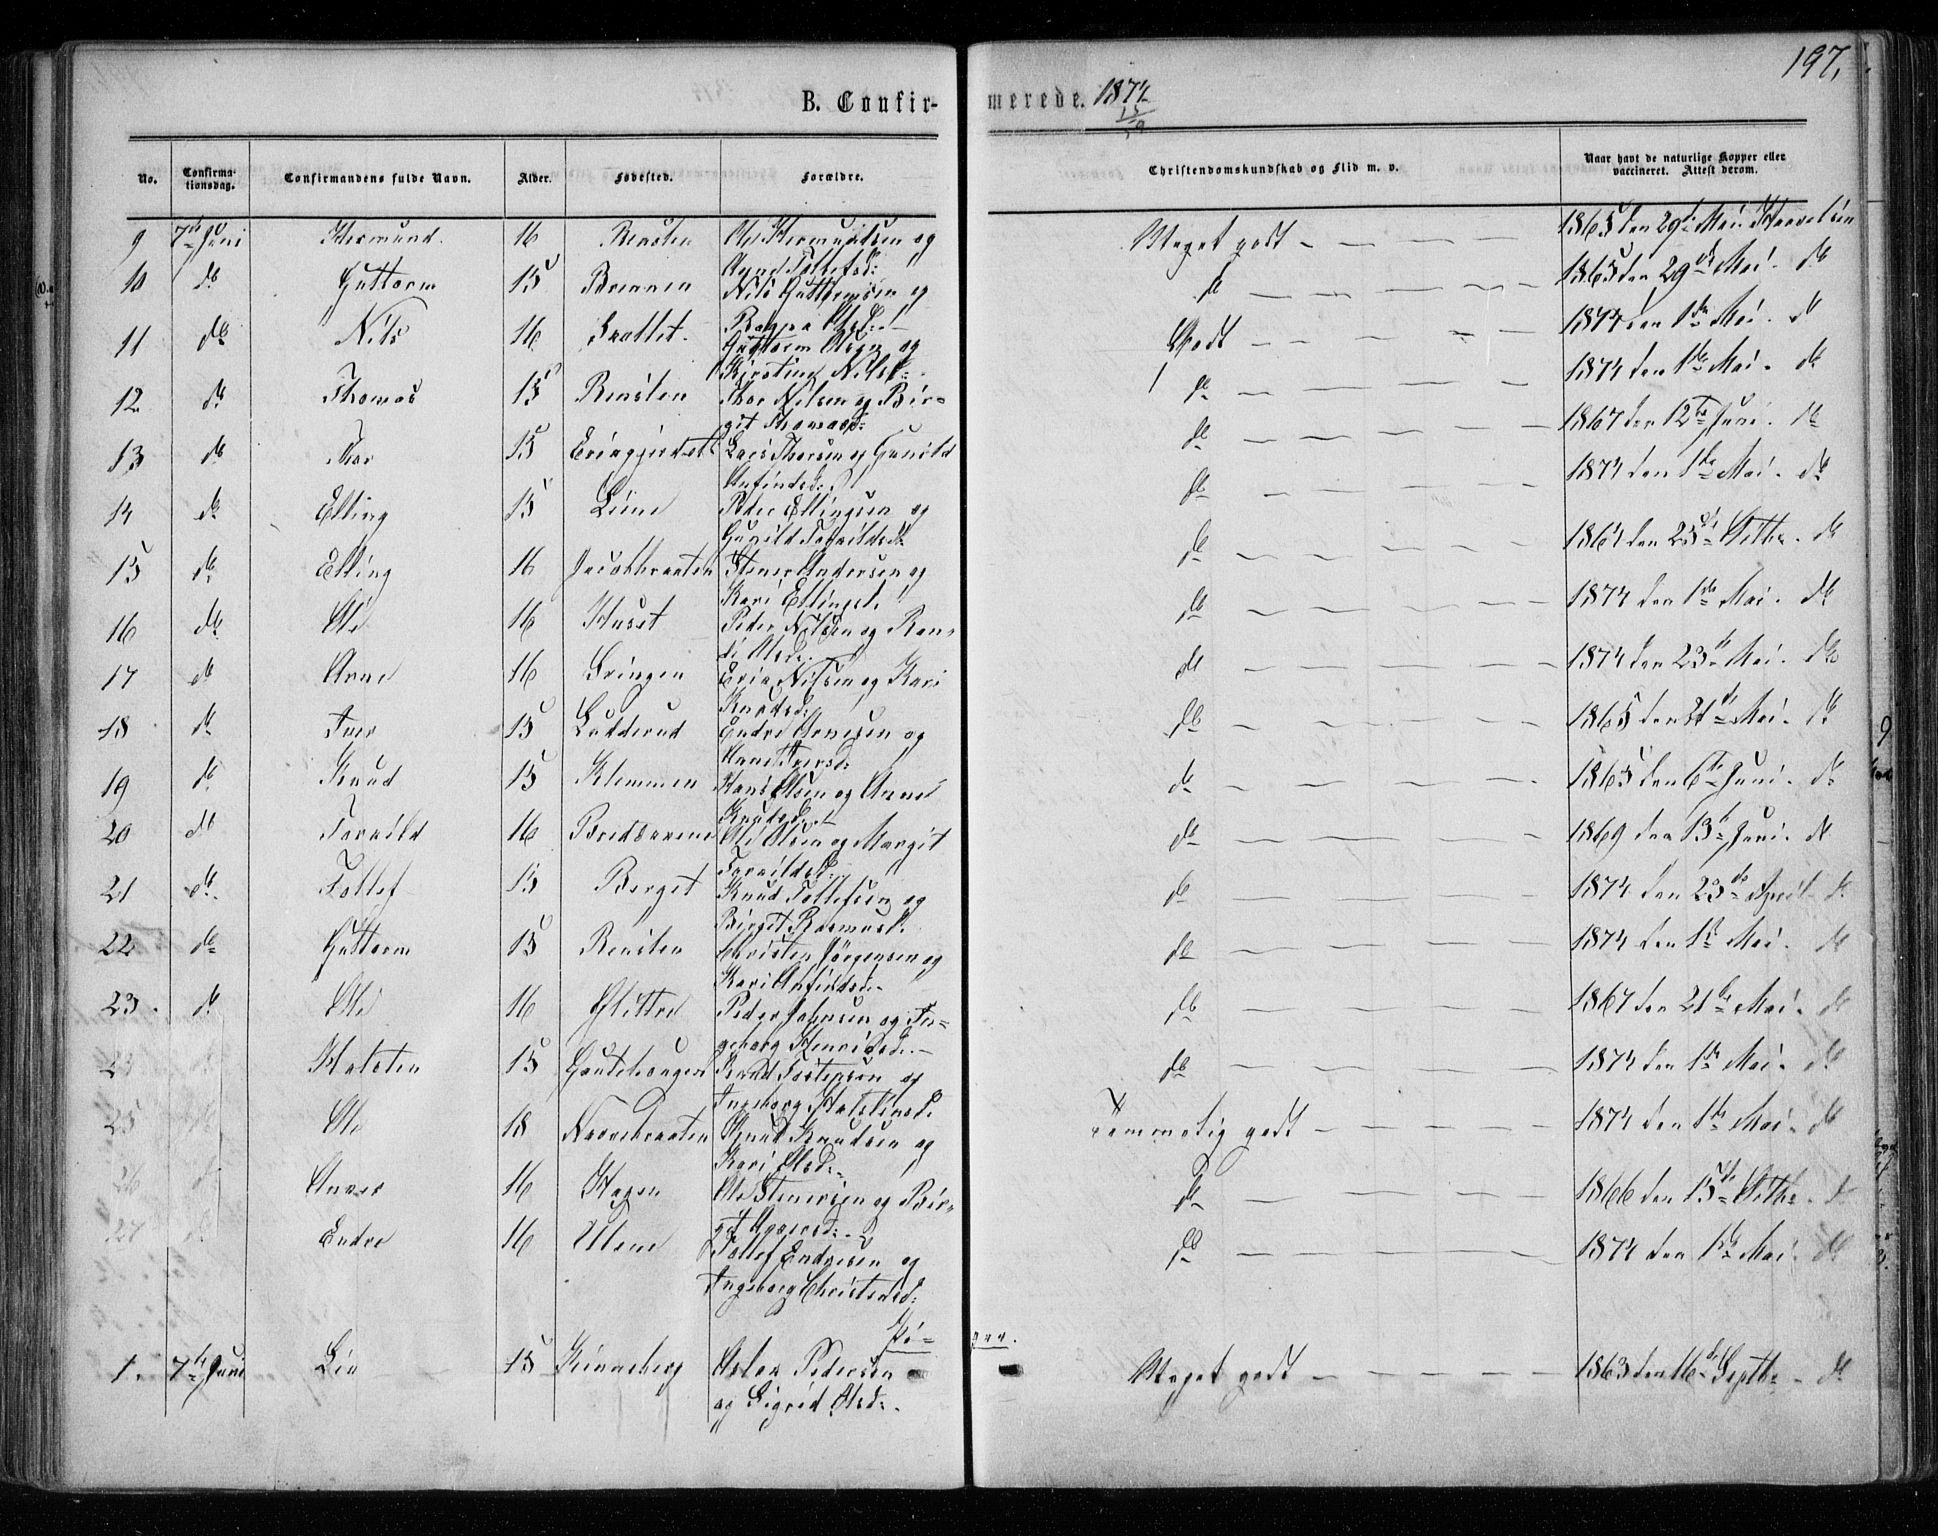 197.
B. Confirmerede. 1874
No. Confirmationsdag. Confirmandens fulde Navn. Alder. Fødested. Forældre. Christendomskundskab og Flid m. v. Naar havt de naturlige Kopper eller vaccineret. Attest derom.
9 7de Juni Hermund. 16 Rensten Ole Hermundsen og Meget godt 1865 den 29de Mai.
Agne Tollefsd:
10 do Guttorm 15 Brennen Nils Guttormsen og do 1865 den 29de Mai. do
Ragna Olsd:
11 do Nils 16 Brattet. Guttorm Olsen og Godt 1874 den 1ste Mai. do
Kirstine Nilsd:
12 do Thomas 15 Rensten Thor Nilsen og Bir- do 1874 den 1ste Mai. do
git Thomasd:
13 do Thor 15 Eringjerdet Lars Thorsen og Gunild do 1867 den 12te Juni. do
Anfindsd:
14 do Elling 15 Liene Peder Ellingsen og do 1874 den 1ste Mai. do
Gunild Torkildsd:
15 do Elling 16 Jacobbraaten Stener Andersen og do 1864 den 25de Octbr. do
Kari Ellingsd.
16 do Ole 16 Huset Peder Nilsen og Ran- do 1874 den 1ste Mai. do
di Olsd:
17 do Arne 16 Bringen Eric Nilsen og Kari do 1874 den 23de Mai. do
Knudsd:
18 do Iver 15 Lukderud Endre Arnesen og do 1865 den 21de Mai. do
Anne Iversd:
19 do Knud 15 Klemmen Hans Olsen og Anne do 1865 den 6te Juni. do
Knudsd:
20 do Torkild 16 Bredvarene Ole Olsen og Margit do 1869 den 13de Juni. do
Torkildsd:
21 do Tollef 15 Berget Knud Tollefsen og do 1874 den 23de April do
Birgit Rasmusd.
22 do Guttorm 15 Rensten Christen Jörgensen og do 1874 den 1ste Mai. do
Kari Anfindsd.
23. do Ole 16 Glittre Peder Johnsen og In- do 1867 den 21de Mai. do
geborg Henriksd.
Halsten 15 Gaptehaugen Knud Torstensen og do 1874 den 1ste Mai. do
Ingeborg Halstensd.
25 Ole 18 Knud Knudsen og Temmelig godt 1874 den 1ste Mai. do
Kari Olsd:
26 16 Hagen Ole Stenersen og Bir- do 1866 den 15de Octbr. do
git
27 Endre 16 Ulene Tollef Endresen og do 1874 den 1ste Mai. do
Ingeborg Christensd:
Pi-
ger.
1. 7de Juni Liv 15 Kinneberg Aslak Pedersen Meget godt 1863 den 16de Septbr. do
og Sigrid Olsd.